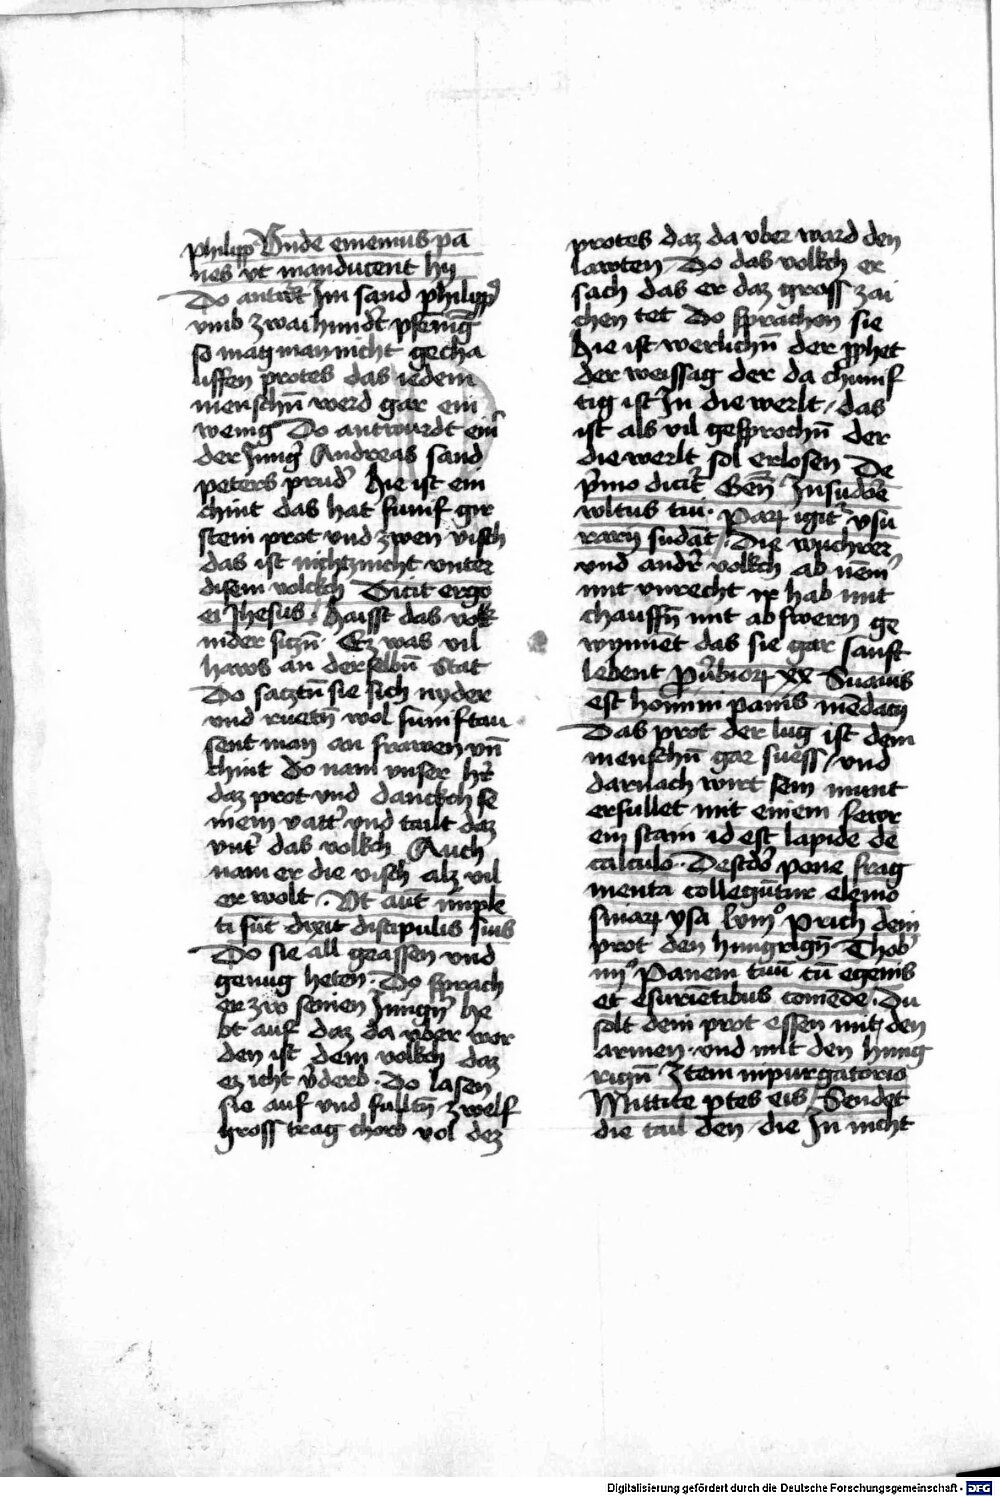 philipp Vnde ememus pa
nes vt manducent hy
Do antwrt Im sand philipp
vmb zwaihundert pfenig
so mag man nicht gecha
uffen protes das iedem
menschn werd gar ein
wenig Do antwurdt einr
der Jungr Andreas sand
peters prudr Hie ist ein
chint das hat fumf gir
stein prot vnd zwen visch
das ist nichtznicht vnter
disem volckch Dicit ergo
ei Jhesus. Haisst das volk
nider siczn. Ez was vil
haws an derselbn stat
Do sacztn sie sich nyder
vnd ruetn wol fumftau
sent man an frawen vn
chint Do nam vnser hr
daz prot vnd danckch se
niem vattr vnd tailt daz
vntr das volkch Auch
nam er die visch alz vil
er wolt. Vt aut imple
ti sut dixit discipulis suis
Do sie all geassen vnd
genug heten. Do sprach
er zw seinen Jungn
bt auf daz da vber wor
den ist dem volkch daz
ez icht vderb. Do lasen
sie auf vnd fultn zwelf
gross trag chorb vol dez
protes daz da vber ward den
lawten Do das volkch er
sach das er daz gross zai
chen tet Do sprachen sie
Hie ist werlichn der pphet
der weissag der da chumf
tig ist In die werlt / das
ist als vil gesprochn der
die werlt sol erlosen De
pmo dicitr Gen Insudore
wltus tui. Parz igitr vsu
rarij sudat / Die wuchrer
vnd andr volkch ab nemr
mit vnrecht ir hab mit
chauffn mit abswern ge
wynnet das sie gar sanft
lebent Pubiorz xx Suauis
est homini panis medacij
Das prot der lug ist dem
menschn gar suess / vnd
darnach wirt sein munt
erfullet mit einem fewr
ein stain id est lapide de
calculo. Descdo pone frag
menta collegutur elemo
sinarz ysa lviijo Prich dein
prot den hungrign Thob
iiijo Panem tuu cu egenis
et esurietibus comede. Du
solt dein prot essen mit den
armen. vnd mit den hung
rign Item inpurgatorio
Mittite ptes eis / Sendet
die tail den / die In nicht
Digitalisierung gefördert durch die Deutsche Forschungsgemeinschaft - DFG